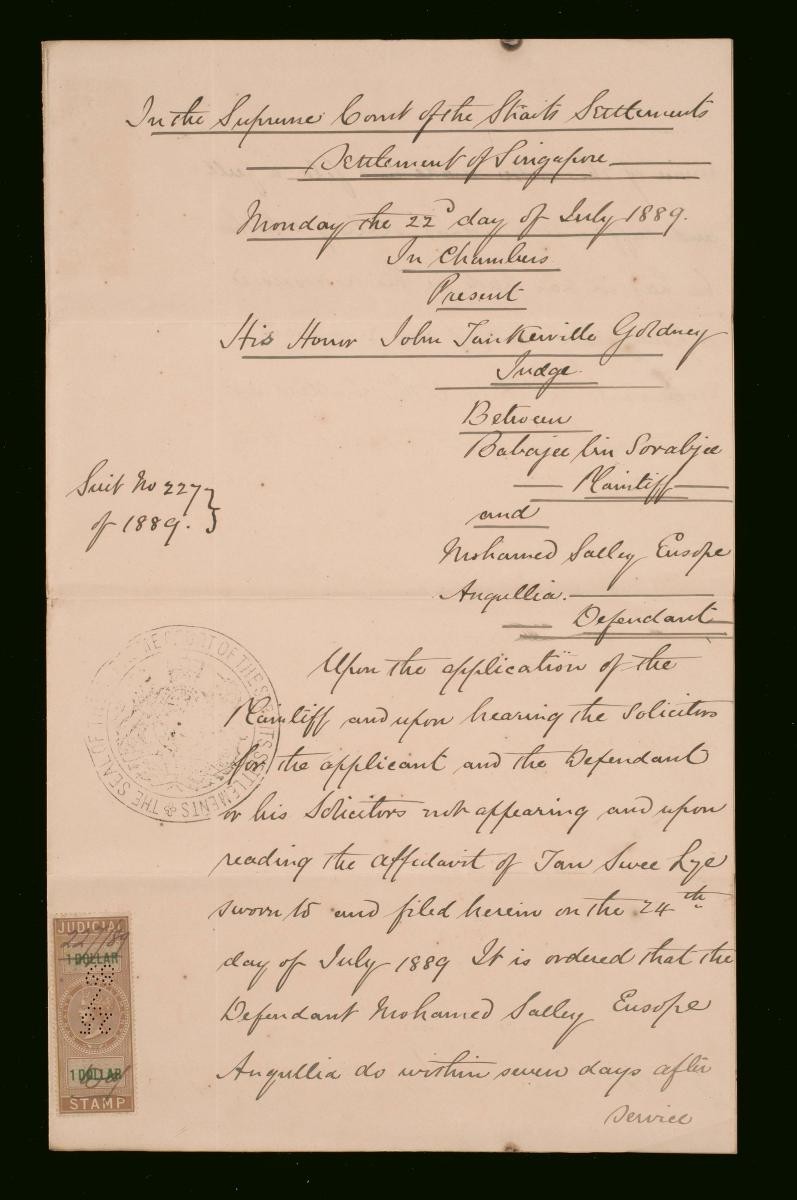 In the Supreme Court of the Straits Settlements
Settlement of Singapore
Monday the 22d day of July 1889.
In Chambers
Present
His Honor John Tankerville Goldney
Judge.
Between
Babajee bin Sorabjee
Plaintiff
and
Mohamed Salley Eusope
Angullia.
Defendant
Suit No 227
of 1889.
Upon the application of the
Plaintiff and upon hearing the Solicitors
for the applicant and the Defendant
or his Solicitors not appearing and upon
reading the affidavit of Tan Swee Lye
sworn to and filed herein on the 24th
day of July 1889 It is ordered that the
Defendant Mohamed Salley Eusope
Angullia do within seven days after
service
THE SEAL OF THE SUPREME COURT OF THE STRAITS SETTLEMENTS
JUDICIAL
227/89
1 DOLLAR
1 DOLLAR
STAMP